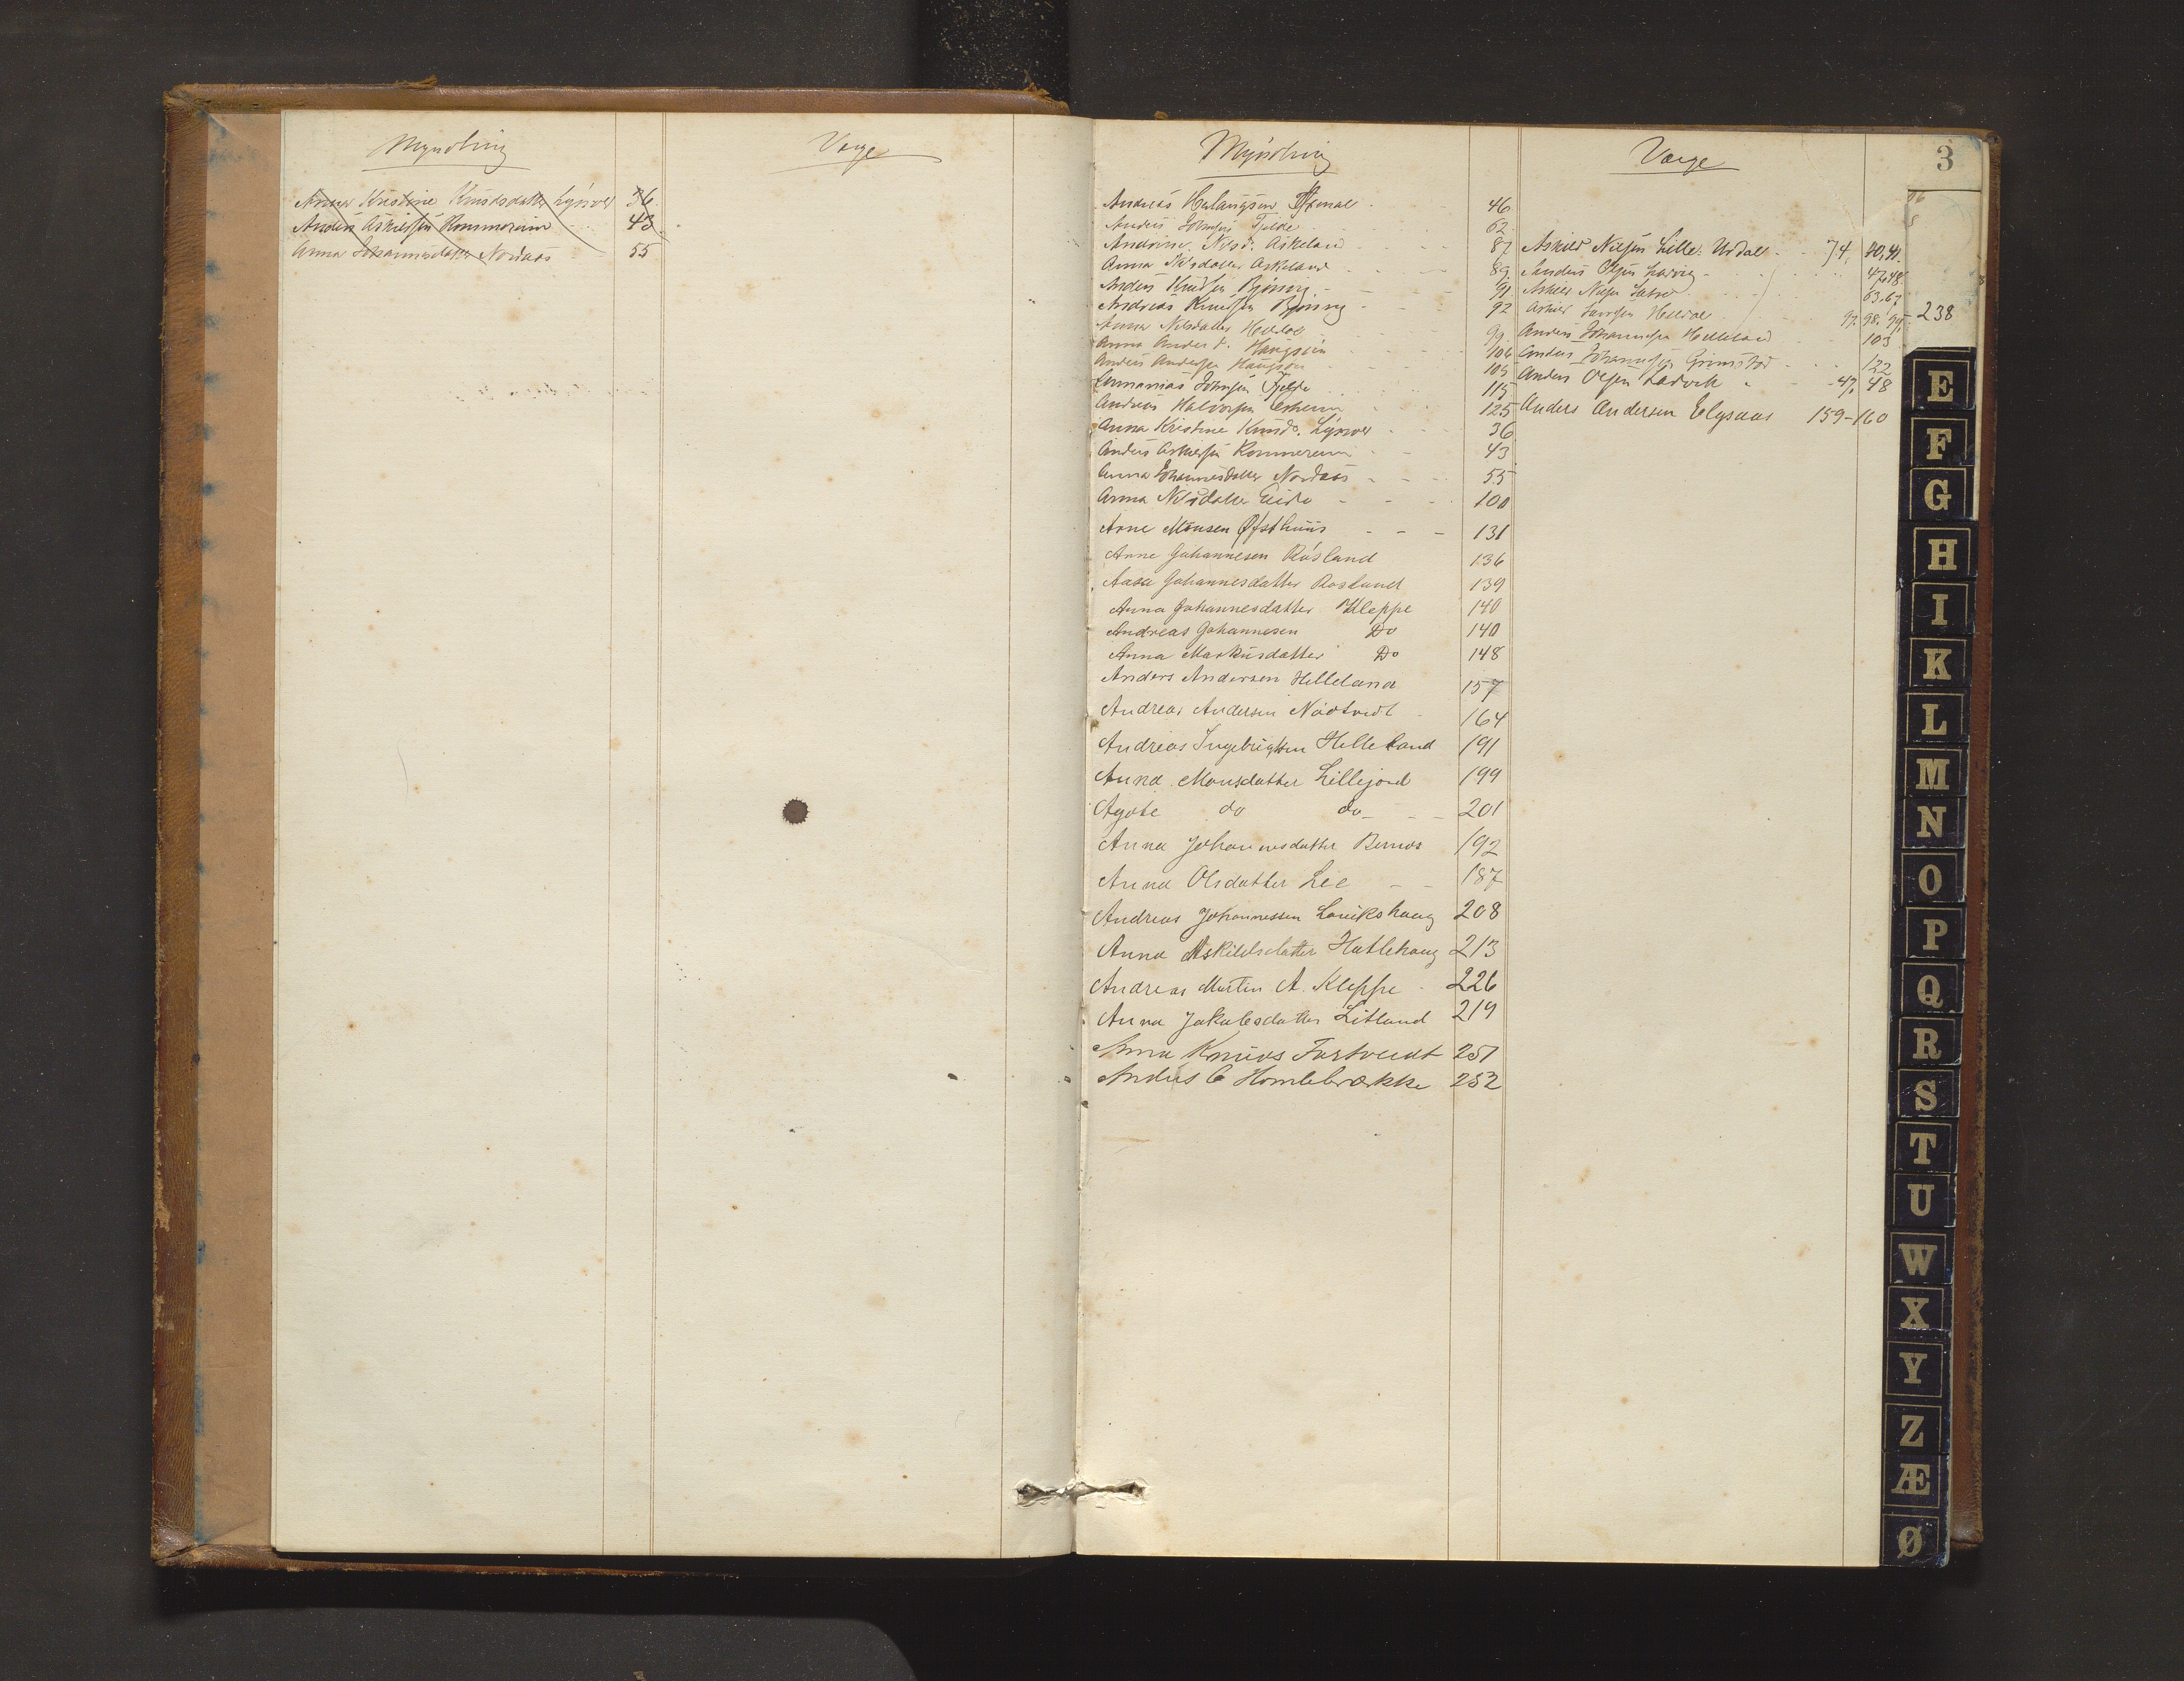 Myndling
Værge
Anna Kristine Knudsdatter Lysver 36
Anders Askildsen Rommereim 43
Anna Johannesdatter Nordaas 55
3
Myndling
Værge
Andreas 46
Anders Johnsen Tjelde 62
Andrine Nilsd. Askeland 87
Anna Nilsdatter Askeland 89
Anders Knudsen Bjøring 91
Andreas Knudsen Bjøring 92
Anna Nilsdatter Helldal 99
Anna Anders d. Haugsøen 106
Anders Andersen Haugsøen 109
Johnsen Tjelde 115
Andreas Halvorsen Askeim 125
Anna Kristine Knudsd. Lysver 36
Anders Askildsen Rommereim 43
Anna Johannesdatter Nordaas 55
Anna Nilsdatter Eide 100
Arne Monsen Øfsthuus 131
Arne Johannesen Røsland 136
Aasa Johannesdatter Rosland 139
Anna Johannesdatter Kleppe 140
Andreas Johannesen Do 140
Anna Markusdatter Do 148
Anders Andersen Helleland 157
Andreas Andersen Nødtvedt 164
Andreas Ingebrigtsen Helleland 191
Anna Monsdatter Lillejord 199
Agate do do 201
Anna Johannesdatter Bernes 192
Anna Olsdatter Lee 187
Andreas Johannessen Lavikshaug 208
Anna Askildsdatter Hatlehaug 213
Andreas Martin A. Kleppe 226
Anna Jakobsdatter Litland 219
Anna Knuds Tvetvedt 251
Anders C Homlebrække 252
Askild Nilsen Lille Urdal 74, 40,41.
Anders Olsen Ladvig 47,48.
Askild Nilsen Sætre 63,67
Askild Larsen Helldal 97. 98, 99. 238
Anders Johannesen Helleland 103
Anders Johannesen Grimstad 122
Anders Olsen Ladvik 47, 48
Anders Andersen Elysaas 159-160
E
F
G
H
I
K
L
M
N
O
P
Q
R
S
T
U
W
X
Y
Z
Æ
Ø